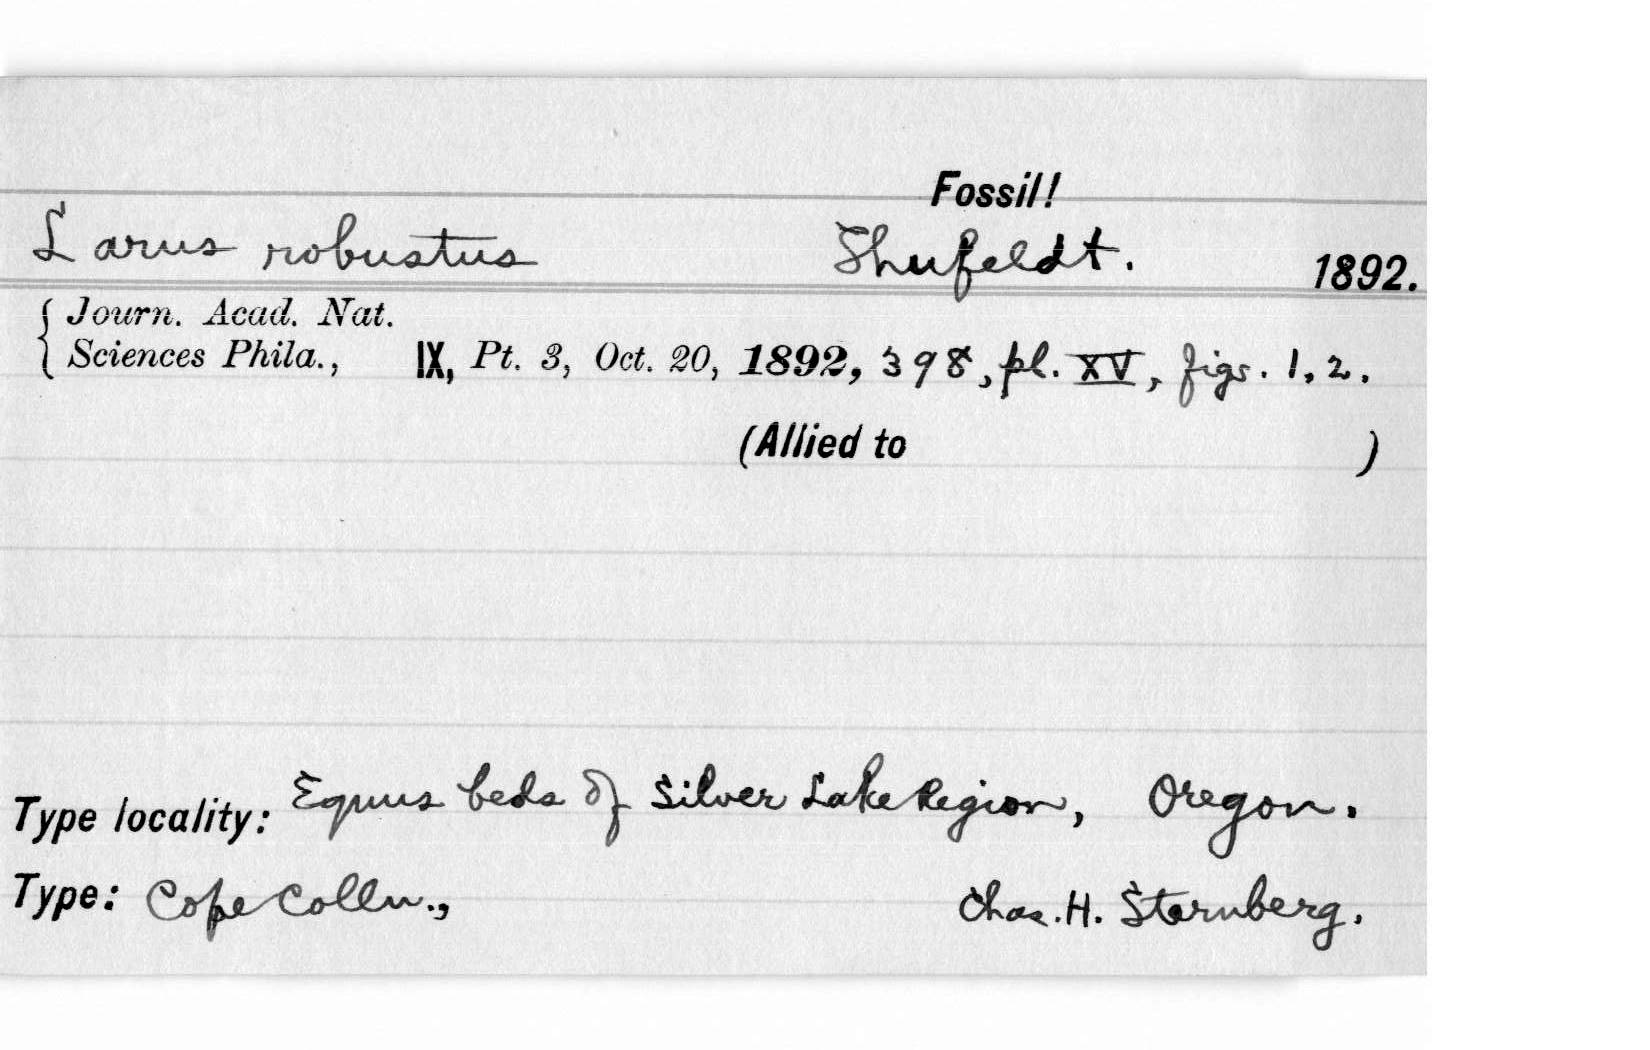 Fossil!
Larus robustus Shufeldt. 1892.
Journ. Acad. Nat.
Sciences Phila., IX, Pt. 3, Oct. 20, 1892, 398, pl. XV, figs. 1, 2.
(Allied to )
Type locality: Equus beds of Silver Lake Region, Oregon.
Type: Cope Colln., Chas. H. Sternberg.